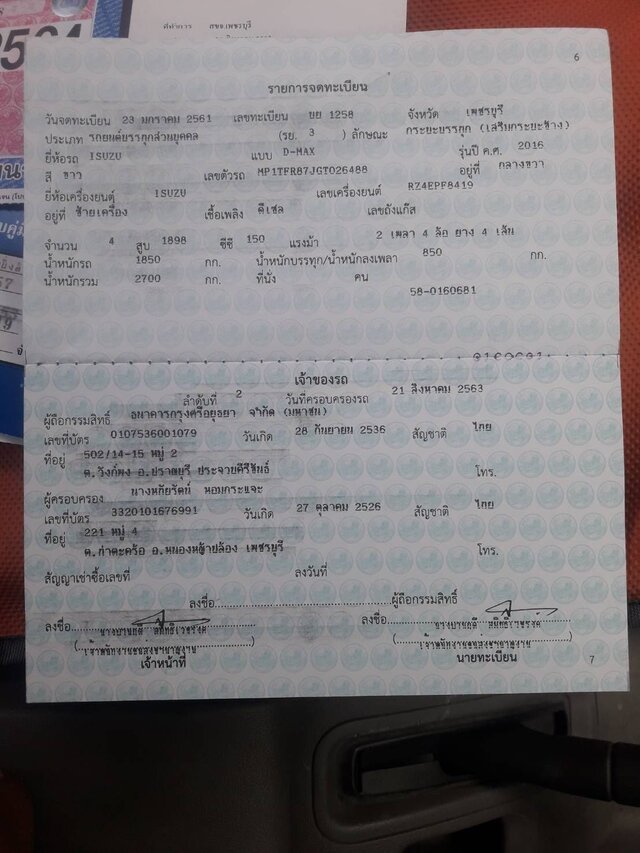 ที่ทำการ สขจ.เพชรบุรี
6
รายการจดทะเบียน
วันจดทะเบียน 23 มกราคม 2561 เลขทะเบียน บย 1258 จังหวัด เพชรบุรี
ประเภท รถยนต์บรรทุกส่วนบุคคล (รย. 3 ) ลักษณะ กระบะบรรทุก (เสริมกระบะข้าง)
ยี่ห้อรถ ISUZU แบบ D-MAX รุ่นปี ค.ศ. 2016
สี ขาว เลขตัวรถ MP1TFR87JGT026488 อยู่ที่ กลางขวา
ยี่ห้อเครื่องยนต์ ISUZU เลขเครื่องยนต์ RZ4EPF8419
อยู่ที่ ซ้ายเครื่อง เชื้อเพลิง ดีเซล เลขถังแก๊ส
จำนวน 4 สูบ 1898 ซีซี 150 แรงม้า 2 เพลา 4 ล้อ ยาง 4 เส้น
น้ำหนักรถ 1850 กก. น้ำหนักบรรทุก/น้ำหนักลงเพลา 850 กก.
น้ำหนักรวม 2700 กก. ที่นั่ง คน
58-0160681
เจ้าของรถ
ลำดับที่ 2 วันที่ครอบครองรถ 21 สิงหาคม 2563
ผู้ถือกรรมสิทธิ์ ธนาคารกรุงศรีอยุธยา จำกัด (มหาชน)
เลขที่บัตร 0107536001079 วันเกิด 28 กันยายน 2536 สัญชาติ ไทย
ที่อยู่ 502/14-15 หมู่ 2
ต.วังก์พง อ.ปราณบุรี ประจวบคีรีขันธ์ โทร.
ผู้ครอบครอง นางหทัยรัตน์ หอมกระแจะ
เลขที่บัตร 3320101676991 วันเกิด 27 ตุลาคม 2526 สัญชาติ ไทย
ที่อยู่ 221 หมู่ 4
ต.ท่าตะคร้อ อ.หนองหญ้าปล้อง เพชรบุรี โทร.
สัญญาเช่าซื้อเลขที่ ลงวันที่
ลงชื่อ ผู้ถือกรรมสิทธิ์
ลงชื่อ ลงชื่อ
เจ้าหน้าที่ นายทะเบียน
7